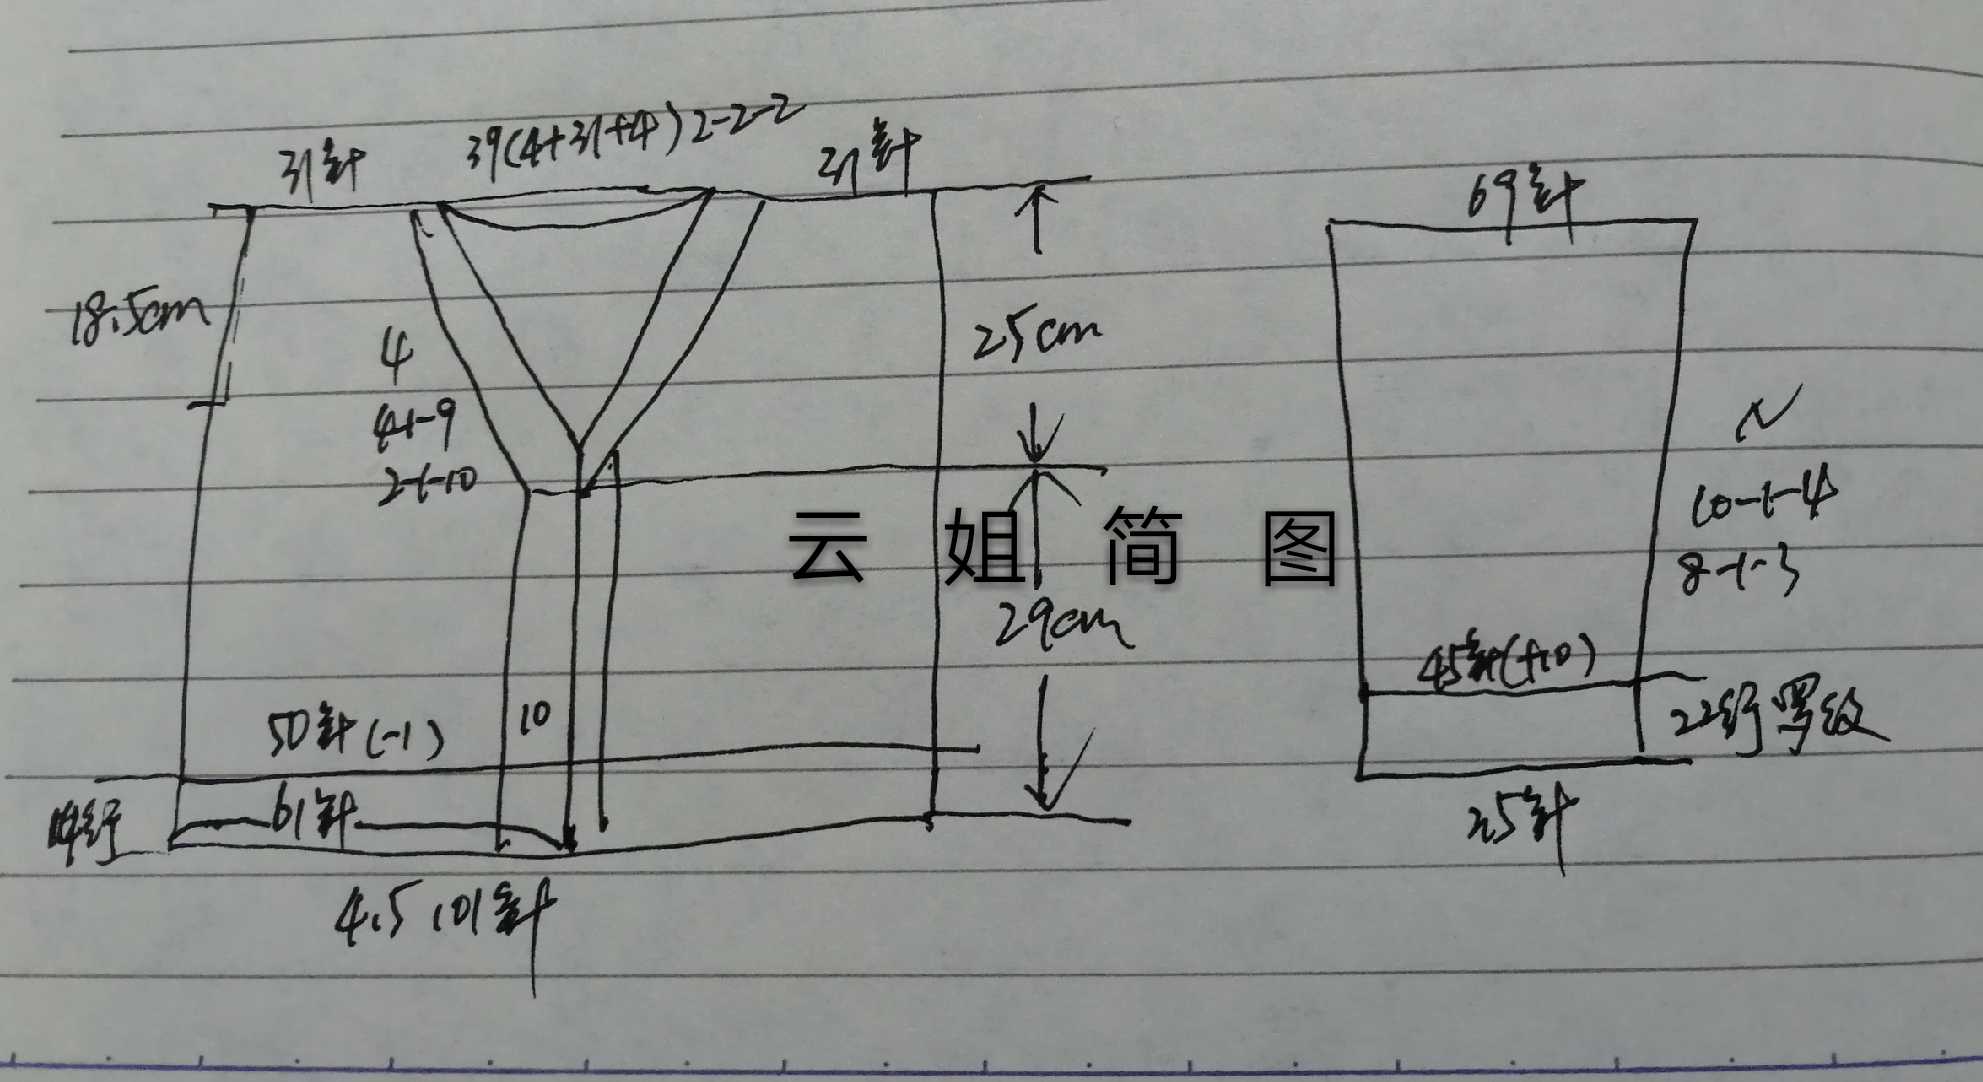 31针
39(4+31+4)2-2-2
31针
18.5cm
4
4-1-9
2-1-10
25cm
29cm
50针(-1)
10
61针
4.5 101针
云姐简图
69针
10-1-4
8-1-3
45针(+10)
22行罗纹
35针